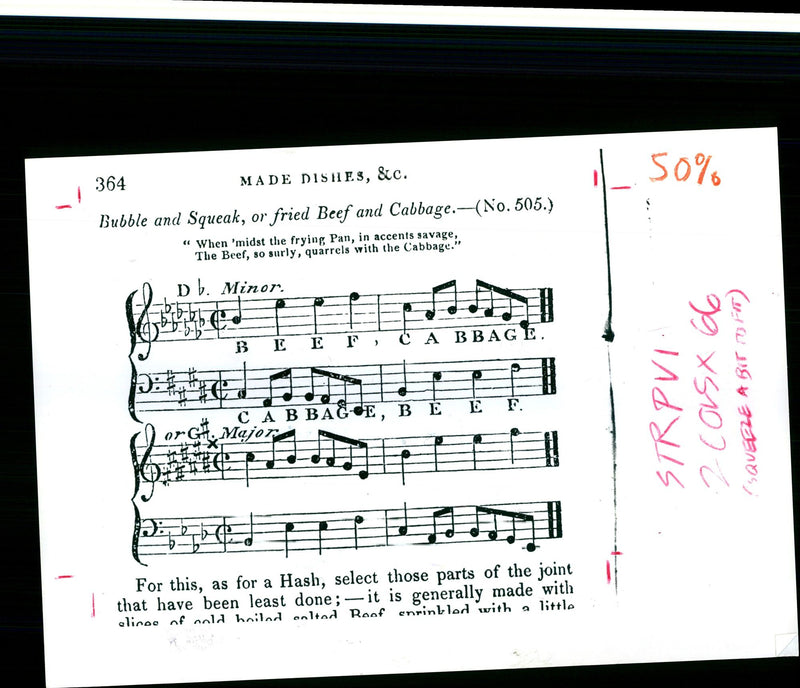 364
MADE DISHES, &c.
Bubble and Squeak, or fried Beef and Cabbage.—(No. 505.)
“ When 'midst the frying Pan, in accents savage,
The Beef, so surly, quarrels with the Cabbage.”
D ♭. Minor.
B E E F , C A B B A G E .
C A B B A G E , B E E F .
or G♯. Major.
For this, as for a Hash, select those parts of the joint
that have been least done;—it is generally made with
slices of cold boiled salted Beef, sprinkled with a little
50%
STRPV1
2 COLS X 66
(SQUEEZE A BIT TO FIT)